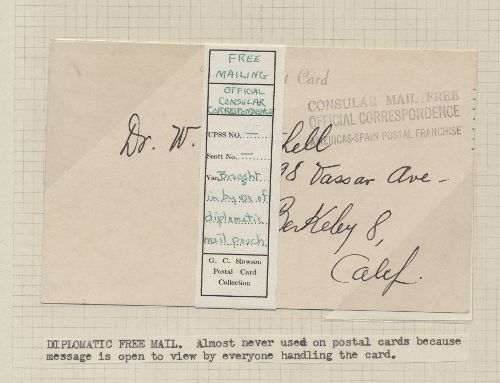 FREE
MAILING
OFFICIAL
CONSULAR
CORRESPONDENCE
UPSS NO. —
Scott No. —
Var. Brought
in by use of
diplomatic
mail pouch.
G. C. Slawson
Postal Card
Collection
t Card
CONSULAR MAIL FREE
OFFICIAL CORRESPONDENCE
AMERICAS-SPAIN POSTAL FRANCHISE
Dr. W. hell
98 Vassar Ave-
Berkeley 8,
Calif.
DIPLOMATIC FREE MAIL. Almost never used on postal cards because
message is open to view by everyone handling the card.